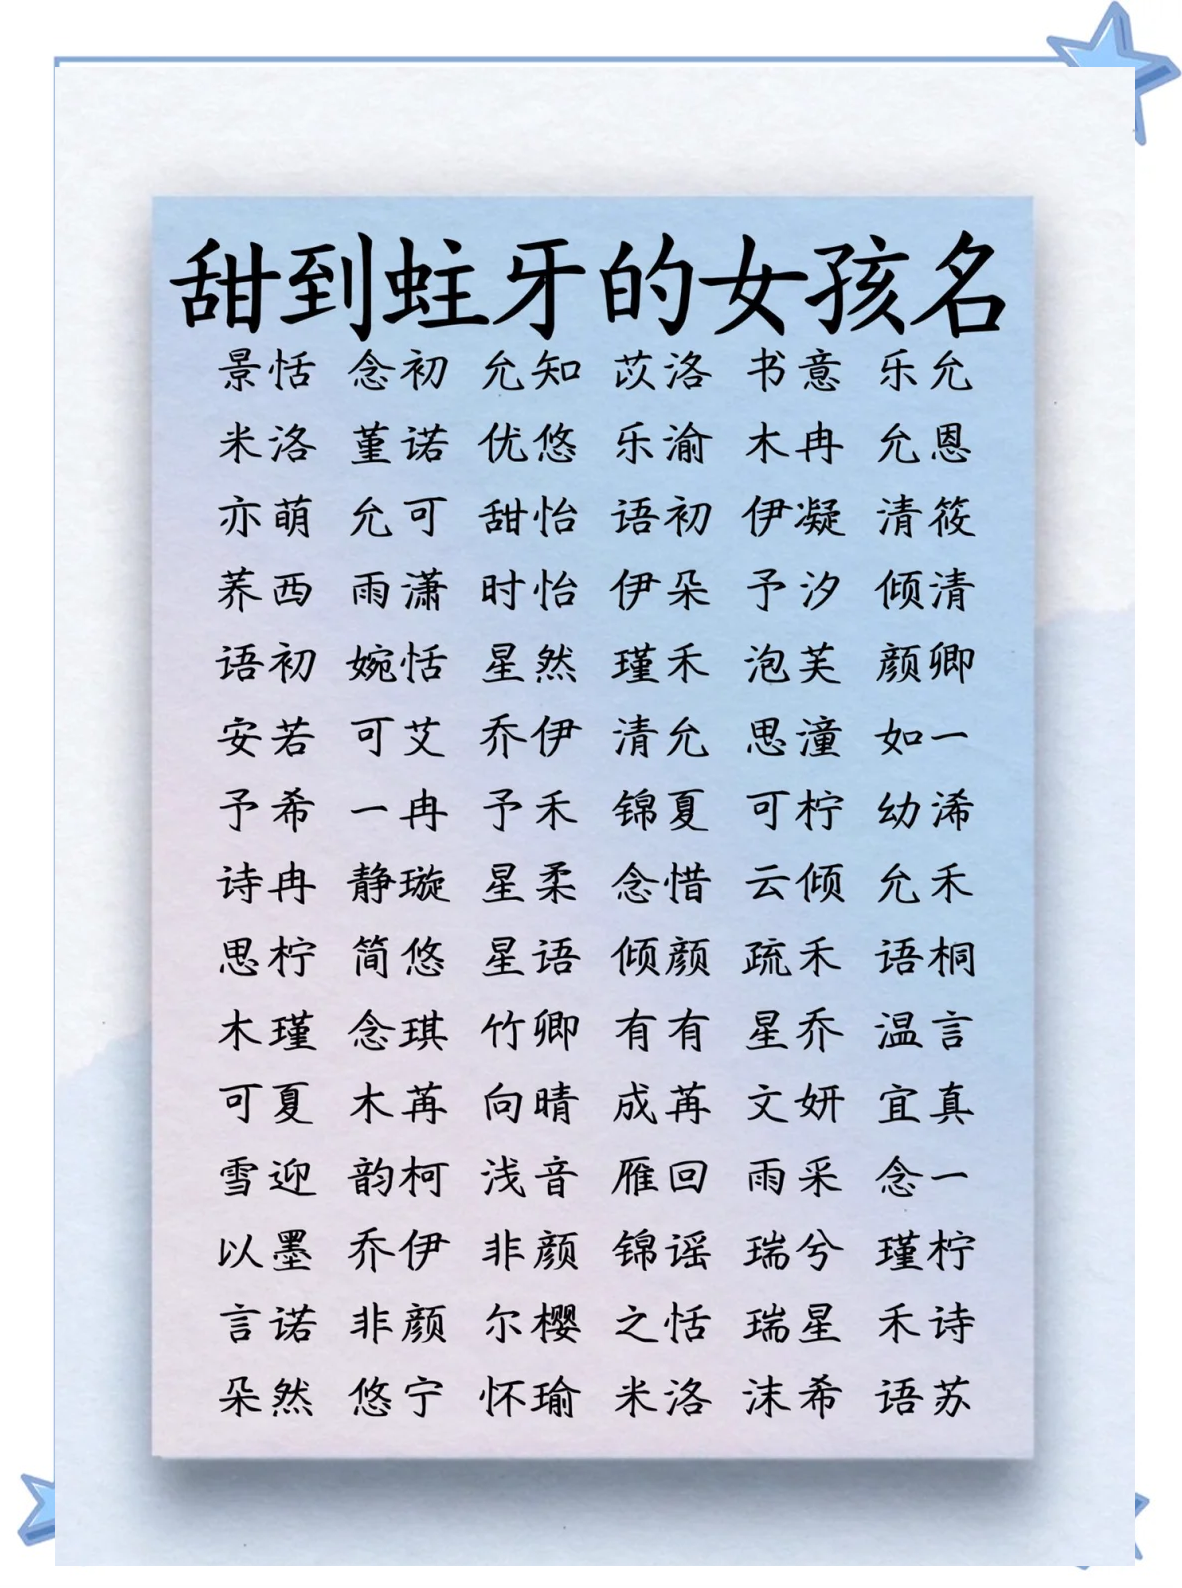 甜到蛀牙的女孩名
景恬 念初 允知 苡洛 书意 乐允
米洛 堇诺 优悠 乐渝 木冉 允恩
亦萌 允可 甜怡 语初 伊凝 清筱
荞西 雨潇 时怡 伊朵 予汐 倾清
语初 婉恬 星然 瑾禾 泡芙 颜卿
安若 可艾 乔伊 清允 思潼 如一
予希 一冉 予禾 锦夏 可柠 幼浠
诗冉 静璇 星柔 念惜 云倾 允禾
思柠 简悠 星语 倾颜 疏禾 语桐
木瑾 念琪 竹卿 有有 星乔 温言
可夏 木苒 向晴 成苒 文妍 宜真
雪迎 韵柯 浅音 雁回 雨采 念一
以墨 乔伊 非颜 锦谣 瑞兮 瑾柠
言诺 非颜 尔樱 之恬 瑞星 禾诗
朵然 悠宁 怀瑜 米洛 沫希 语苏